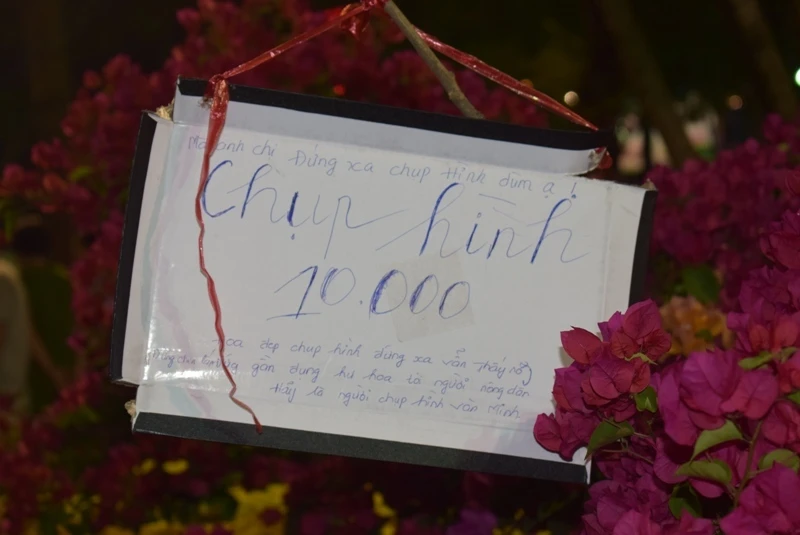 Mà anh chị Đứng xa chụp Hình dùm ạ!
Chụp hình
10.000
Hoa đẹp chụp hình đứng xa vẫn thấy nó
đứng gần đụng hư hoa tội người nông dân
Hãy là người chụp hình văn Minh